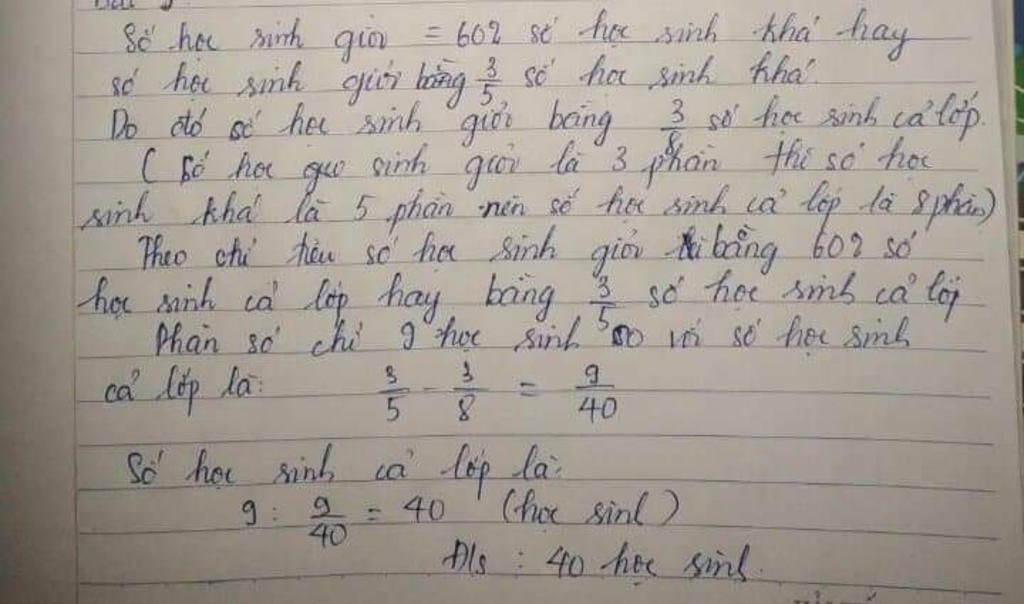 Số học sinh giỏi = 60% số học sinh khá hay
số học sinh giỏi bằng 3/5 số học sinh khá.
Do đó số học sinh giỏi bằng 3/8 số học sinh cả lớp.
( Số học sinh giỏi là 3 phần thì số học
sinh khá là 5 phần nên số học sinh cả lớp là 8 phần)
Theo chỉ tiêu số học sinh giỏi bằng 60% số
học sinh cả lớp hay bằng 3/5 số học sinh cả lớp
Phân số chỉ 9 học sinh so với số học sinh
cả lớp là: 3/5 - 3/8 = 9/40
Số học sinh cả lớp là:
9 : 9/40 = 40 (học sinh)
Đ/s : 40 học sinh.